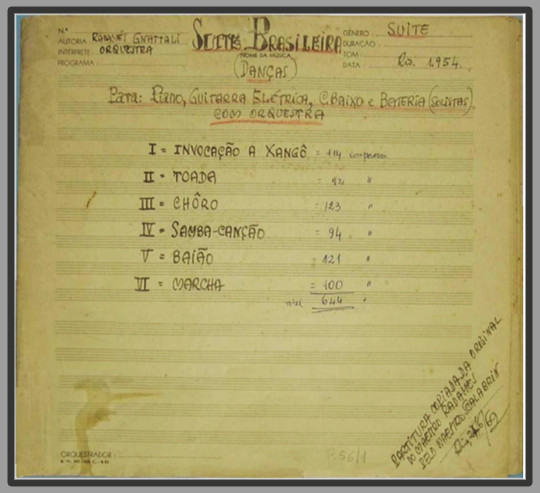 Nº
AUTORIA RADAMÉS GNATTALI SUITE BRASILEIRA GÊNERO SUITE
INTÉRPRETE ORQUESTRA (NOME DA MÚSICA) DURAÇÃO
PROGRAMA (DANÇAS) TOM
DATA Rio. 1954.
PARA: PIANO, GUITARRA ELÉTRICA, C.BAIXO e BATERIA (SOLISTAS)
COM ORQUESTRA
I = INVOCAÇÃO A XANGÔ = 114 compassos
II = TOADA = 92 "
III = CHÔRO = 123 "
IV = SAMBA-CANÇÃO = 94 "
V = BAIÃO = 121 "
VI = MARCHA = 100 "
644 "
PARTITURA COPIADA DA ORIGINAL
DO MAESTRO RADAMÉS
PELO MAESTRO CALABRIN
ORQUESTRADOR